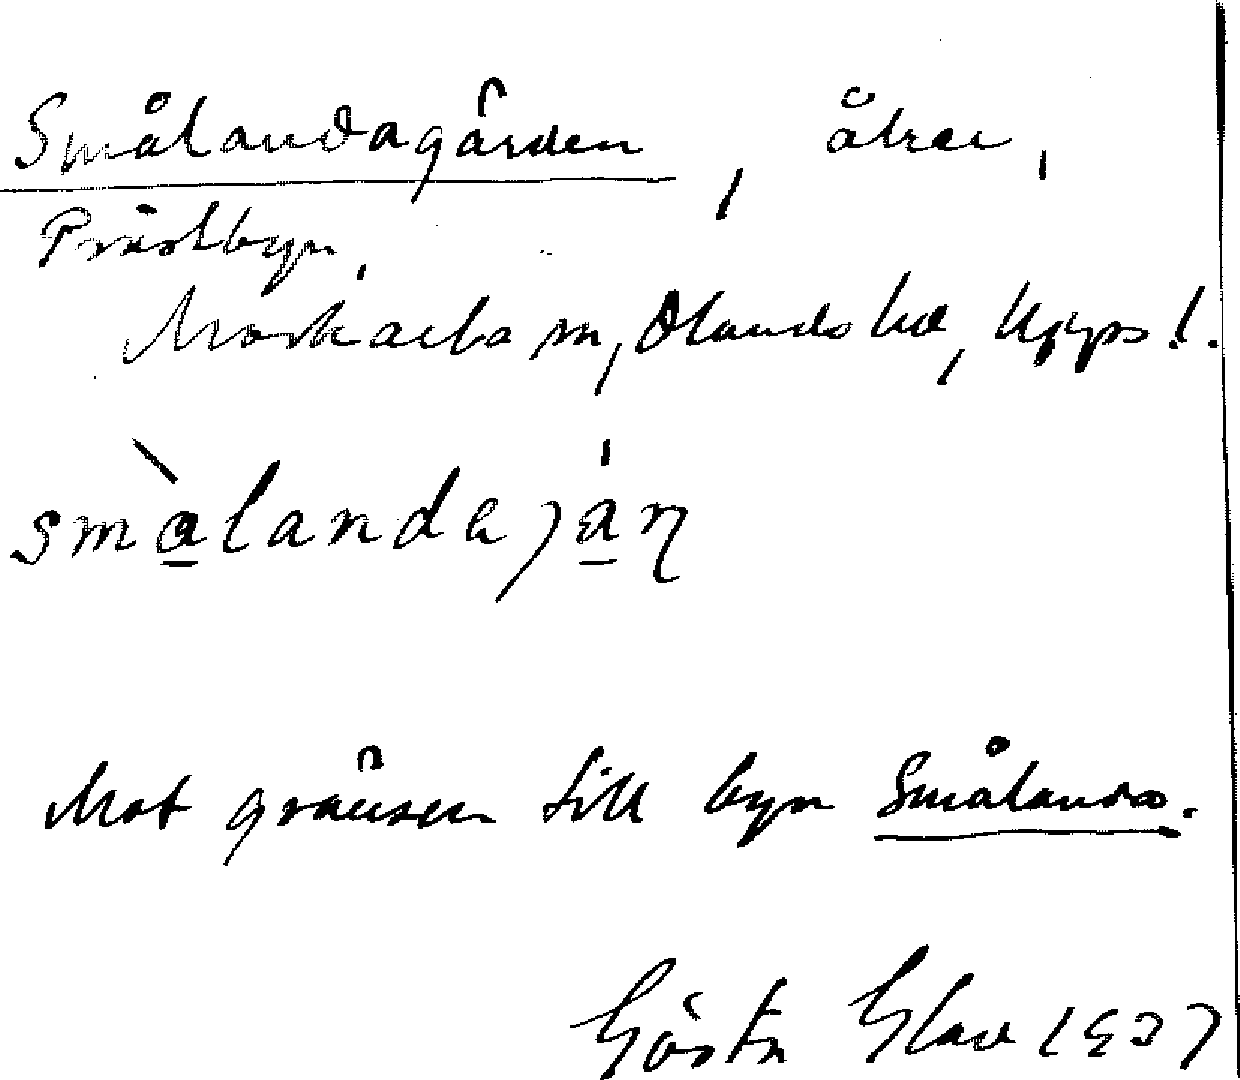 Smålandagärden, åker,
Prästbyn,
Morkarla sn, Olands hd, Upps. l.
smà̱landajá̱ɳ
Mot gränsen till byn Smålanda.
Gösta 1937